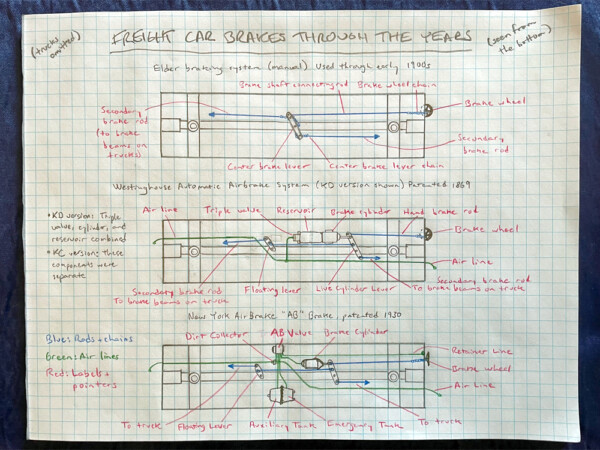 (trucks omitted)
FREIGHT CAR BRAKES THROUGH THE YEARS
(seen from the bottom)
Elder braking system (manual) Used through early 1900s
Brake shaft connecting rod
Brake wheel chain
Secondary brake rod (to brake beams on trucks)
Brake wheel
Secondary brake rod
Center brake lever
Center brake lever chain
Westinghouse Automatic Airbrake System (KD version shown) Patented 1869
• KD version: Triple valve, cylinder, and reservoir combined
• KC version: these components were separate
Air line
Triple valve
Reservoir
Brake cylinder
Hand brake rod
Brake wheel
Air line
Secondary brake rod
To brake beams on truck
Floating lever
Live Cylinder Lever
Secondary brake rod
To brake beams on truck
New York Air Brake "AB" Brake, patented 1930
Blue: Rods + chains
Green: Air lines
Red: Labels + pointers
Dirt Collector
AB Valve
Brake Cylinder
Retainer Line
Brake wheel
Air Line
To truck
Floating Lever
Auxiliary Tank
Emergency Tank
To truck